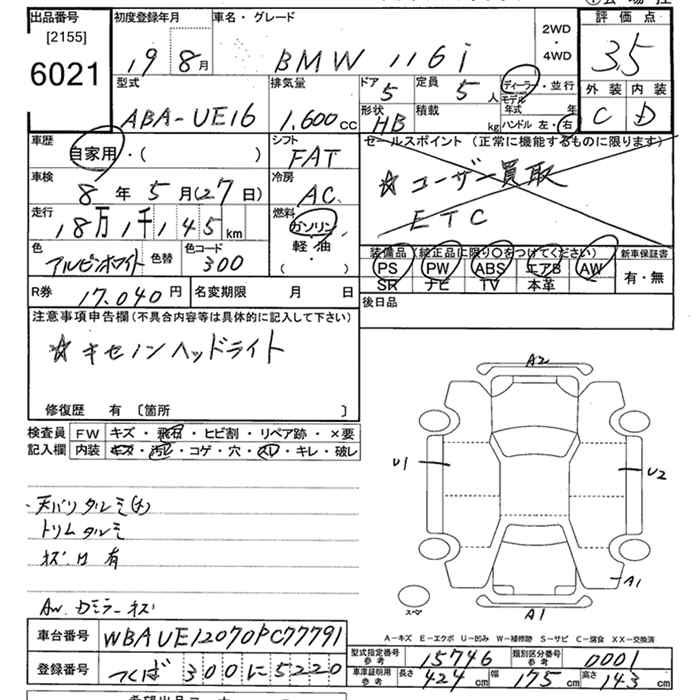 出品番号 初度登録年月 車名・グレード 2WD・4WD 評価点
[2155]
6021
19 8月 BMW 116i 3.5
型式 排気量 ドア 定員 ディーラー・並行 外装 内装
ABA-UE16 1,600cc 5 5人 モデル年式 年 C D
形状 積載 ハンドル 左・右
HB kg
車歴 シフト セールスポイント (正常に機能するものに限ります)
自家用・( ) FAT ☆ユーザー買取
車検 冷房 ETC
8年5月(27日) AC
走行 燃料
18万1千145km ガソリン・軽・油・( )
色 色替 色コード 装備品(純正品に限り○をつけてください) 新車保証書
アルピンホワイト 300 PS PW ABS エアB AW 有・無
SR ナビ TV 本革
R券 17,040円 名変期限 月 日 後日品
注意事項申告欄(不具合内容等は具体的に記入して下さい)
☆キセノンヘッドライト
修復歴 有〔箇所 〕
検査員 FW キズ・飛石・ヒビ割・リペア跡・×要
記入欄 内装 キズ・汚れ・コゲ・穴・スレ・キレ・破レ
・天バリタルミ(大)
トリムタルミ
有
AW.Dミラーキズ
A2
U1 U2
A1
スペア
A1
A－キズ E－エクボ U－凹み W－補修跡 S－サビ C－腐食 XX－交換済
車台番号 WBAUE12070PC77791
登録番号 つくば300に5220
型式指定番号 参考 15746 類別区分番号 参考 0001
車庫証明用 参考 長さ 424cm 幅 175cm 高さ 143cm